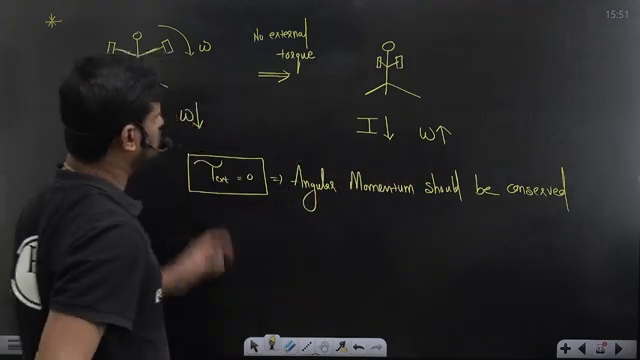 15:51
* ω No external
torque
ω↓ I↓ ω↑
τext = 0 ⇒ Angular Momentum should be conserved